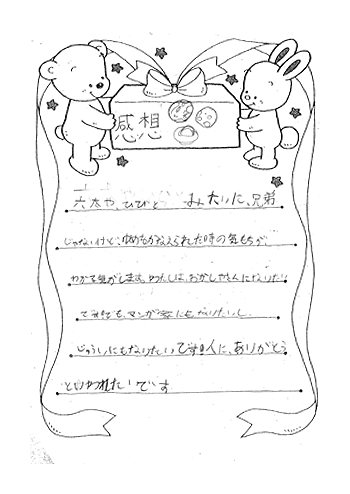 感想
六太や、ひびと みたいに、兄弟
じゃないけど、ゆめをかなえられた時の気もちが、
わかる気がします。わたしは、おかしやさんになりたい
ですけども、マンガ家にもなりたいし、
じゅういにもなりたいです。人に、ありがとう
といわれたいです